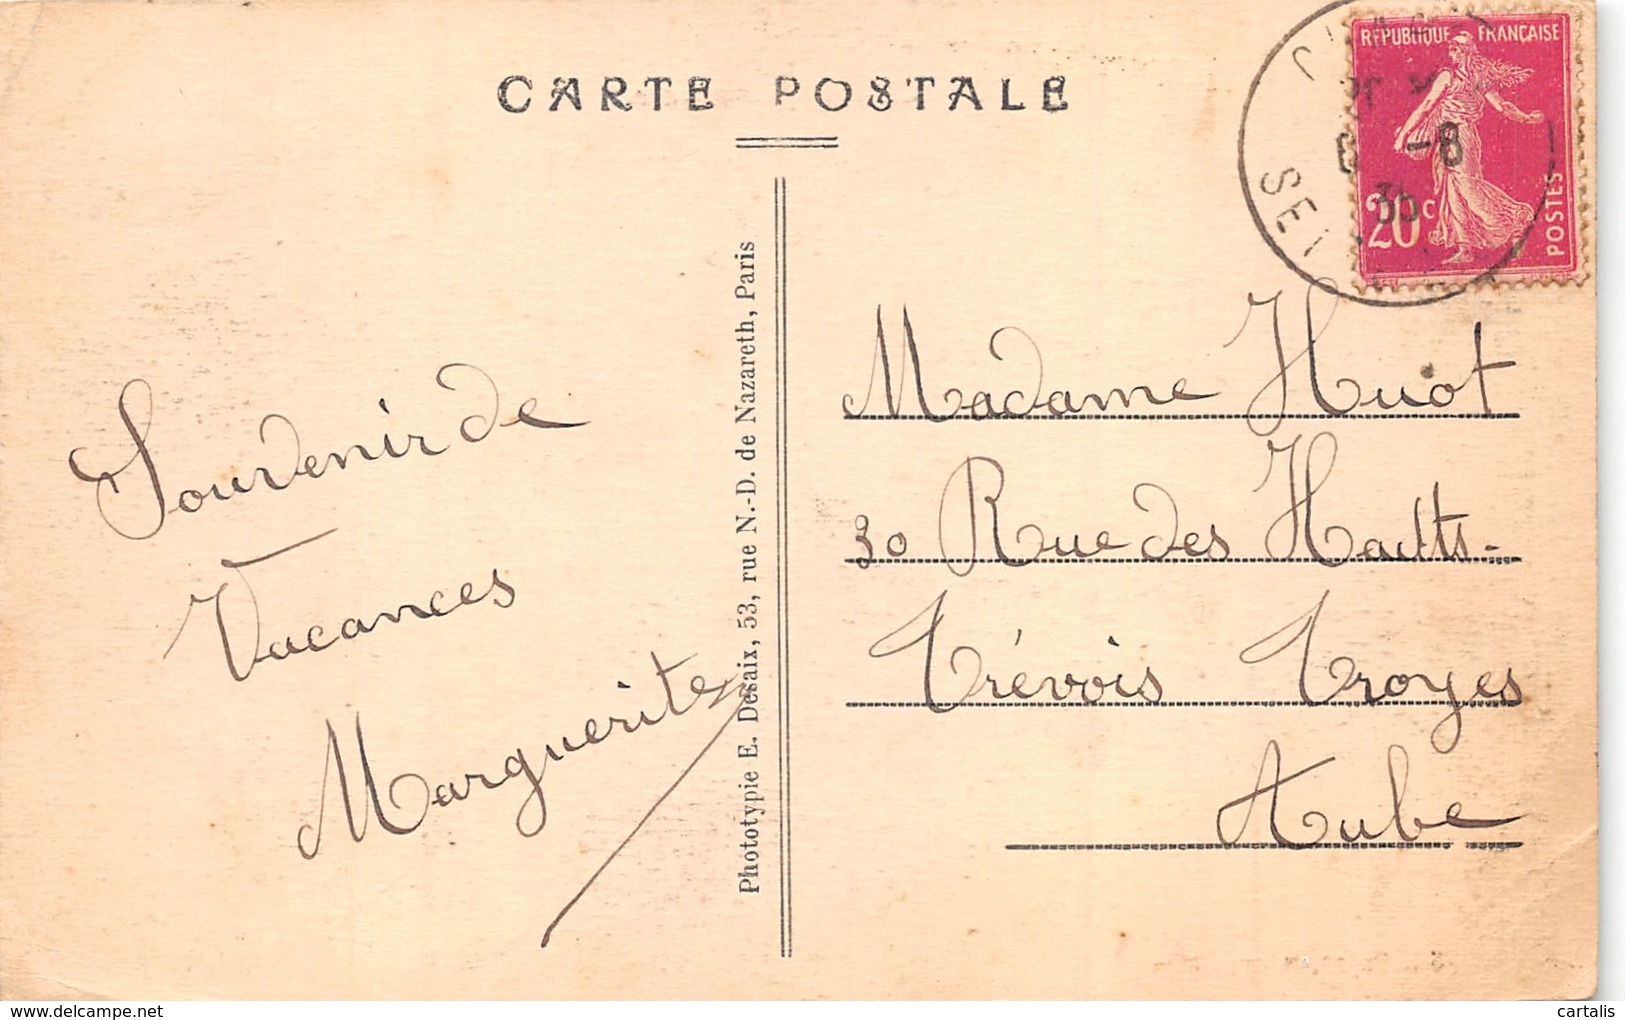 CARTE POSTALE
RÉPUBLIQUE FRANÇAISE
20c
POSTES
SEI
-8
35
Souvenir de
Vacances
Marguerite
Phototypie E. Desaix, 53, rue N.-D. de Nazareth, Paris
Madame Huot
30 Rue des Hauts-
Trévois Troyes
Aube
cartalis
delcampe.net